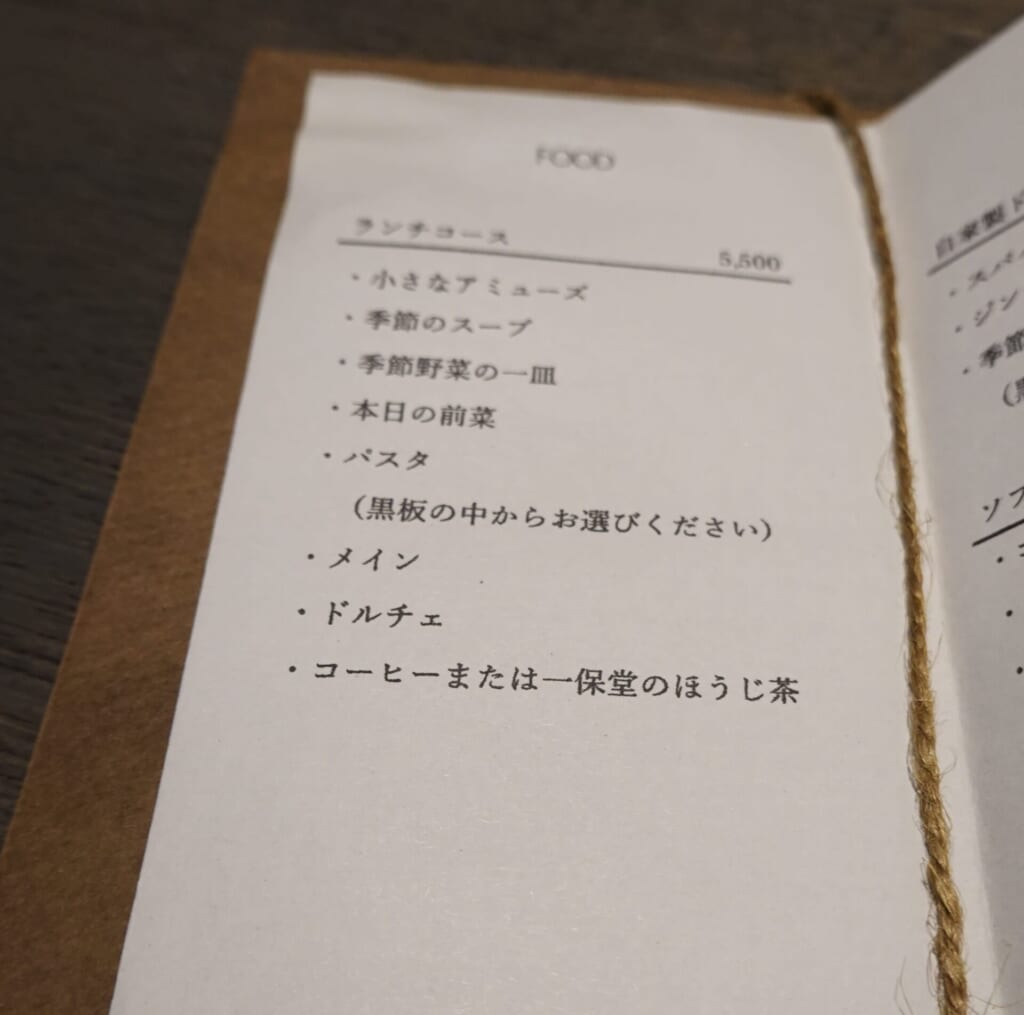 FOOD
ランチコース 5,500
・小さなアミューズ
・季節のスープ
・季節野菜の一皿
・本日の前菜
・パスタ
（黒板の中からお選びください）
・メイン
・ドルチェ
・コーヒーまたは一保堂のほうじ茶
自家製
・スパ
・ジン
・季節
（黒
ソフ